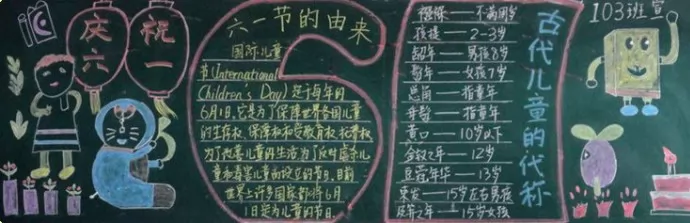 庆六
祝一
六一节的由来
国际儿童
节(International
Children's Day)定于每年的
6月1日,它是为了保障世界各国儿童
的生存权、保障和受教育权、抚养权
为了改善儿童的生活,为了反对虐杀儿
童和毒害儿童而设立的节日,目前
世界上许多国家都将6月
1日定为儿童的节日。
古代儿童的代称
襁褓——不满周岁
孩提——2-3岁
龆年——男孩8岁
髫年——女孩7岁
总角——指童年
黄口——10岁以下
金钗之年——12岁
豆蔻年华——13岁
束发——15岁左右男孩
及笄之年——15岁女孩
103班宣